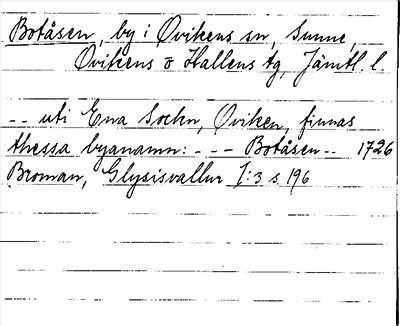 Botåsen, by i Ovikens sn, Sunne,
Ovikens o Hallens tg, Jämtl. l
-- uti Ena Sochn, Oviken, finnas
thessa byanamn: --- Botåsen -- 1726
Broman, Glysisvallur I:3 s 196